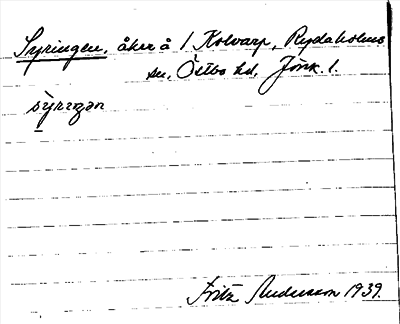 Syringen, åker å 1 Kolvarp, Rydaholms
sn, Östbo hd, Jönk. l.
syrəŋən
Fritz Andersson 1939.